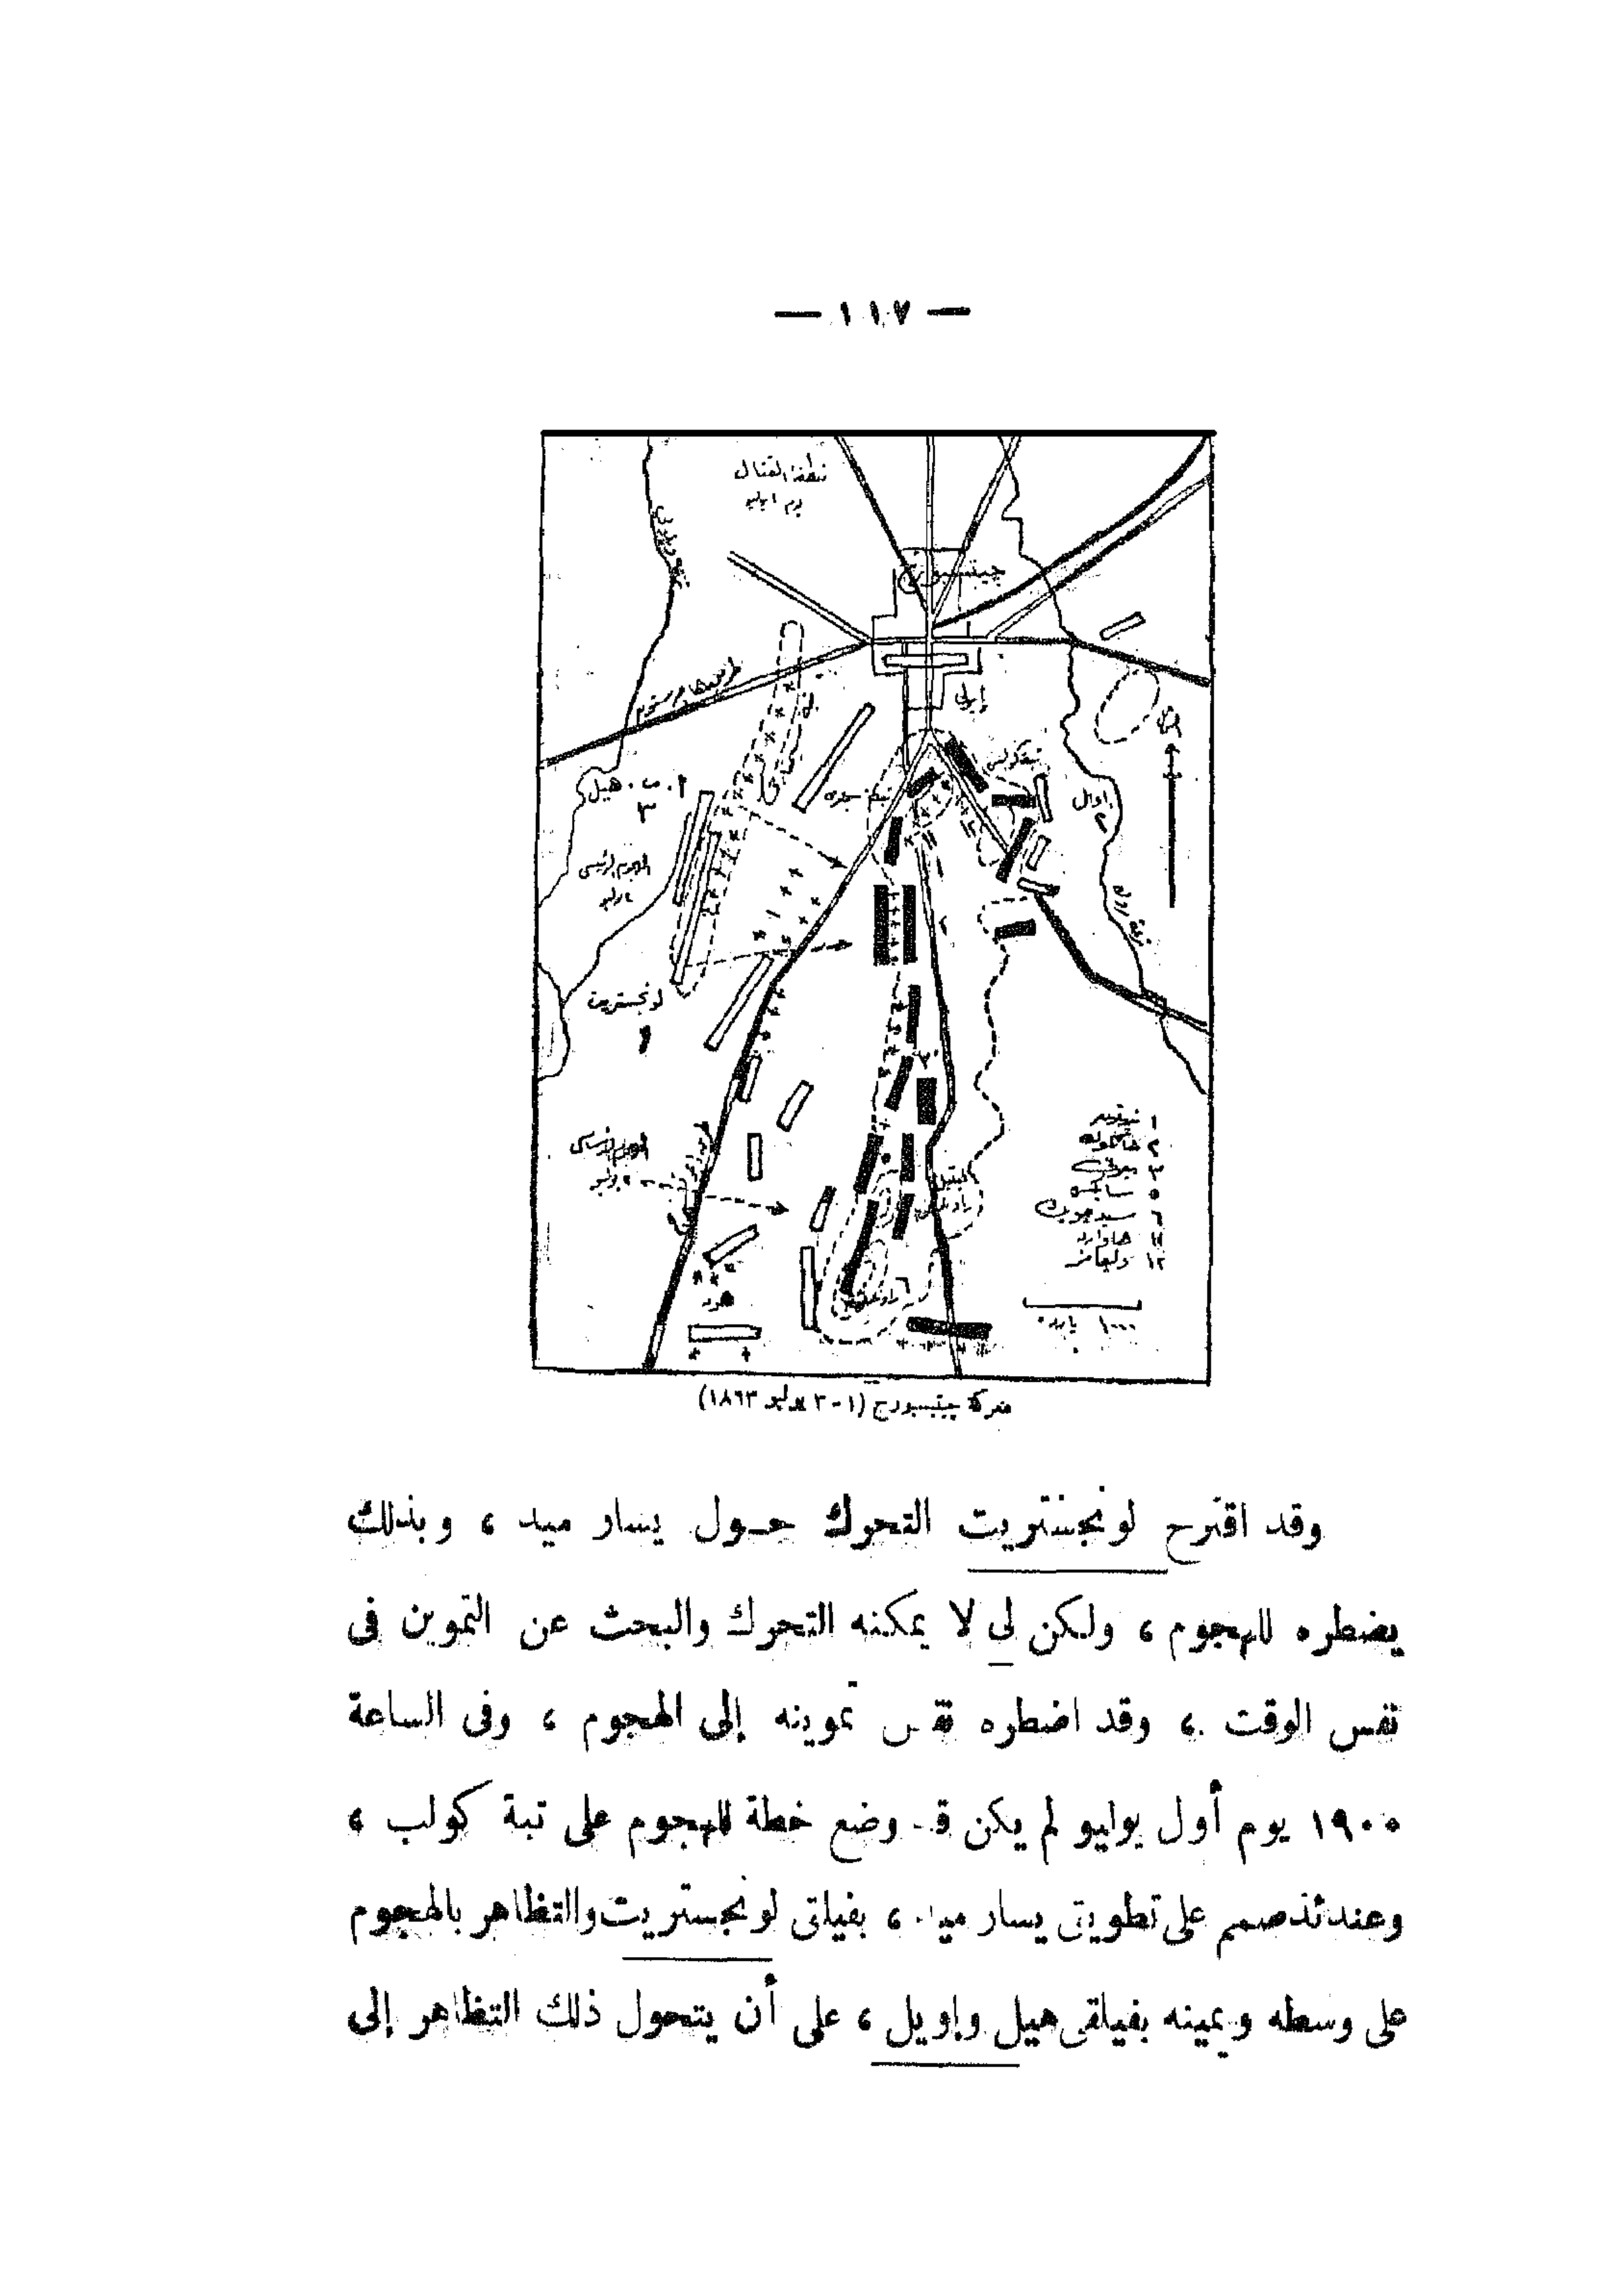 — ١١٧ —
منطقة القتال
يوم ١ يوليو
جيتسبورج
إيرلى
ا. ب. هيل
٣
إوال
٢
الهجوم الرئيسى
لونجستريت
١
هود
٢ هانكوك
٣
٥ سايكس
٦ سيدجويك
١١ هاوارد
١٢
١٠٠٠ ياردة
معركة جيتسبورج (١-٣ يوليو ١٨٦٣)
وقد اقترح لونجستريت التحرك حـول يسار ميد ، وبذلك
يضطره للهجوم ، ولكن لى لا يمكنه التحرك والبحث عن التموين فى
نفس الوقت ، وقد اضطره تموينه إلى الهجوم ، وفى الساعة
١٩٠٠ يوم أول يوليو لم يكن وضع خطة للهجوم على تبة كولب ،
وعندئذ صمم على تطويق يسار ميد ، بفيلق لونجستريت والتظاهر بالهجوم
على وسطه ويمينه بفيلقى هيل وإويل ، على أن يتحول ذلك التظاهر إلى